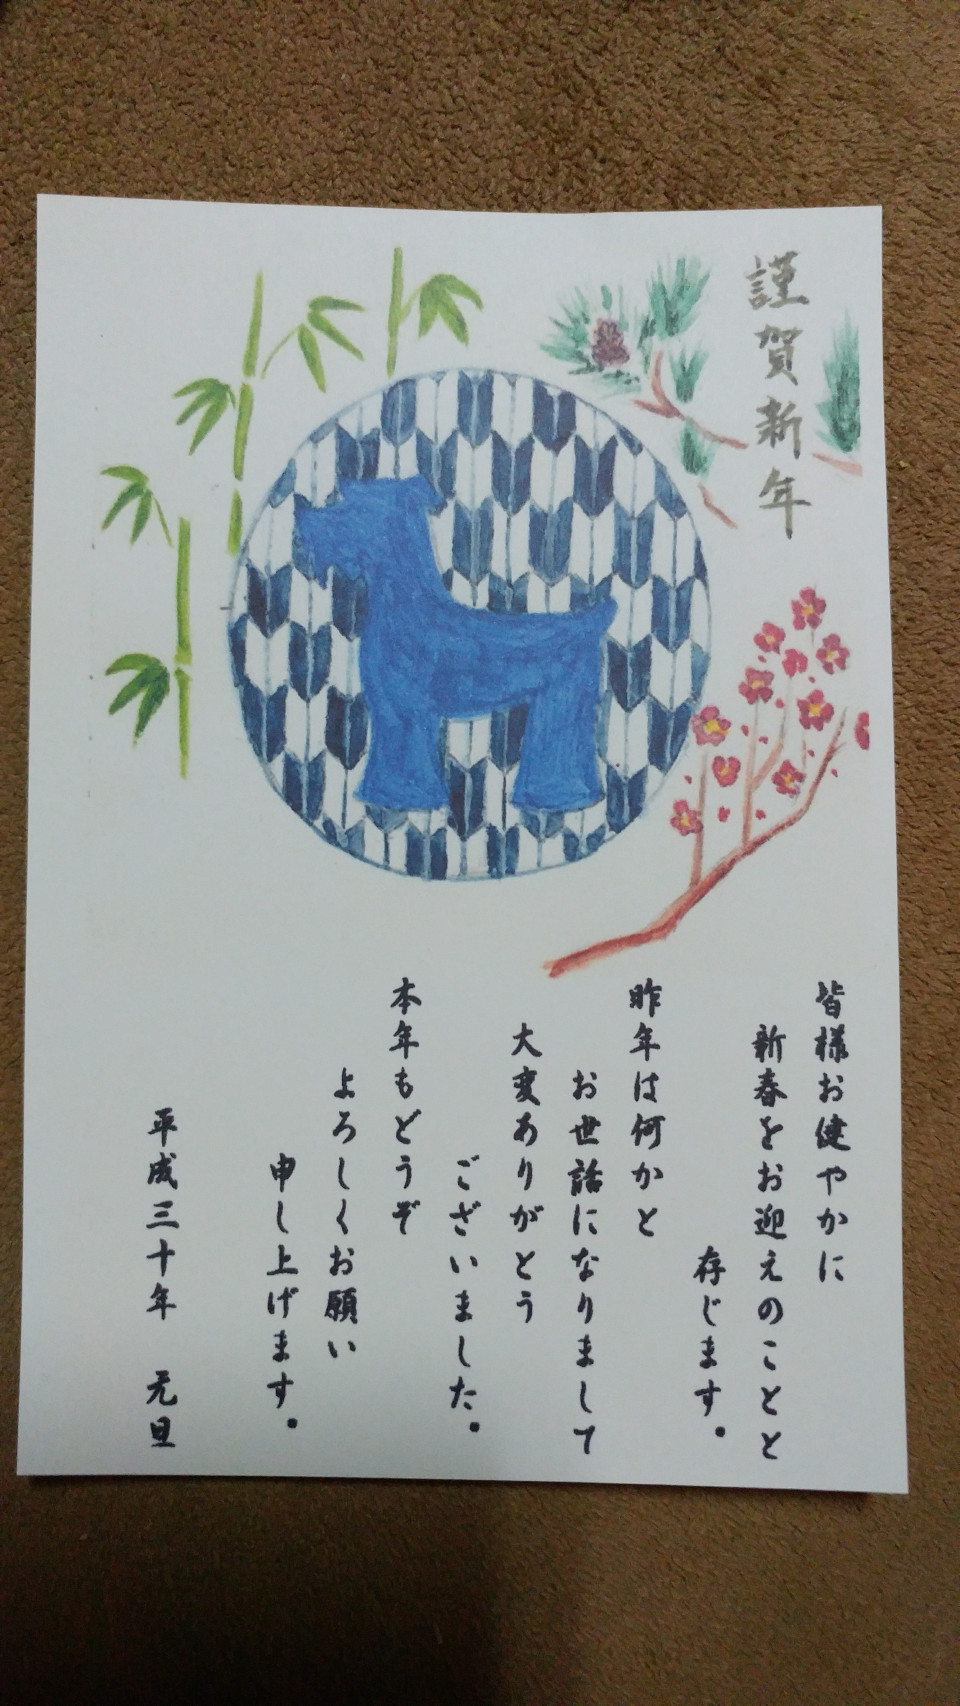 謹賀新年
皆様お健やかに
新春をお迎えのことと
存じます。
昨年は何かと
お世話になりまして
大変ありがとう
ございました。
本年もどうぞ
よろしくお願い
申し上げます。
平成三十年 元旦